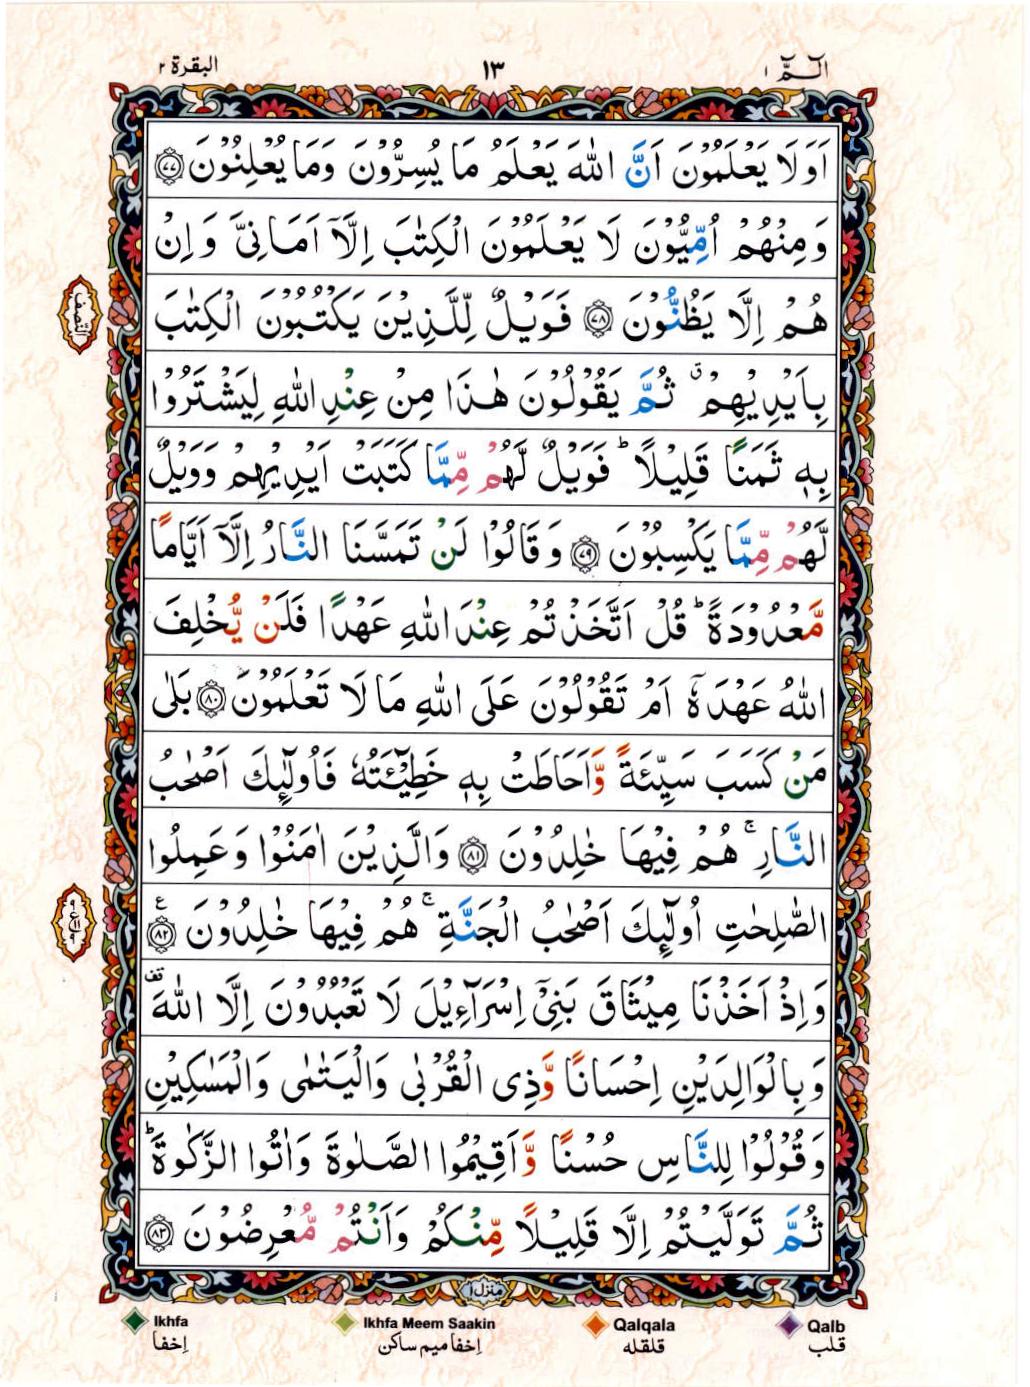 الٓمّٓ ١
١٣
البقرة ٢
اَوَلَا يَعْلَمُوْنَ اَنَّ اللّٰهَ يَعْلَمُ مَا يُسِرُّوْنَ وَمَا يُعْلِنُوْنَ ﴿٧٧﴾
وَمِنْهُمْ اُمِّيُّوْنَ لَا يَعْلَمُوْنَ الْكِتٰبَ اِلَّاۤ اَمَانِيَّ وَاِنْ
هُمْ اِلَّا يَظُنُّوْنَ ﴿٧٨﴾ فَوَيْلٌ لِّلَّذِيْنَ يَكْتُبُوْنَ الْكِتٰبَ
النّصف
بِاَيْدِيْهِمْ ۗ ثُمَّ يَقُوْلُوْنَ هٰذَا مِنْ عِنْدِ اللّٰهِ لِيَشْتَرُوْا
بِهٖ ثَمَنًا قَلِيْلًا ؕ فَوَيْلٌ لَّهُمْ مِّمَّا كَتَبَتْ اَيْدِيْهِمْ وَوَيْلٌ
لَّهُمْ مِّمَّا يَكْسِبُوْنَ ﴿٧٩﴾ وَقَالُوْا لَنْ تَمَسَّنَا النَّارُ اِلَّاۤ اَيَّامًا
مَّعْدُوْدَةً ؕ قُلْ اَتَّخَذْتُمْ عِنْدَ اللّٰهِ عَهْدًا فَلَنْ يُّخْلِفَ
اللّٰهُ عَهْدَهٗۤ اَمْ تَقُوْلُوْنَ عَلَى اللّٰهِ مَا لَا تَعْلَمُوْنَ ﴿٨٠﴾ بَلٰى
مَنْ كَسَبَ سَيِّئَةً وَّاَحَاطَتْ بِهٖ خَطِيْٓـَٔتُهٗ فَاُولٰٓئِكَ اَصْحٰبُ
النَّارِ ۚ هُمْ فِيْهَا خٰلِدُوْنَ ﴿٨١﴾ وَالَّذِيْنَ اٰمَنُوْا وَعَمِلُوا
الصّٰلِحٰتِ اُولٰٓئِكَ اَصْحٰبُ الْجَنَّةِ ۚ هُمْ فِيْهَا خٰلِدُوْنَ ﴿٨٢﴾ ع
وَاِذْ اَخَذْنَا مِيْثَاقَ بَنِيْۤ اِسْرَآءِيْلَ لَا تَعْبُدُوْنَ اِلَّا اللّٰهَ قف
وَبِالْوَالِدَيْنِ اِحْسَانًا وَّذِى الْقُرْبٰى وَالْيَتٰمٰى وَالْمَسٰكِيْنِ
وَقُوْلُوْا لِلنَّاسِ حُسْنًا وَّاَقِيْمُوا الصَّلٰوةَ وَاٰتُوا الزَّكٰوةَ ؕ
ثُمَّ تَوَلَّيْتُمْ اِلَّا قَلِيْلًا مِّنْكُمْ وَاَنْتُمْ مُّعْرِضُوْنَ ﴿٨٣﴾
منزل ١
Ikhfa Ikhfa Meem Saakin Qalqala Qalb
اِخفا اِخفا میم ساکن قلقله قلب